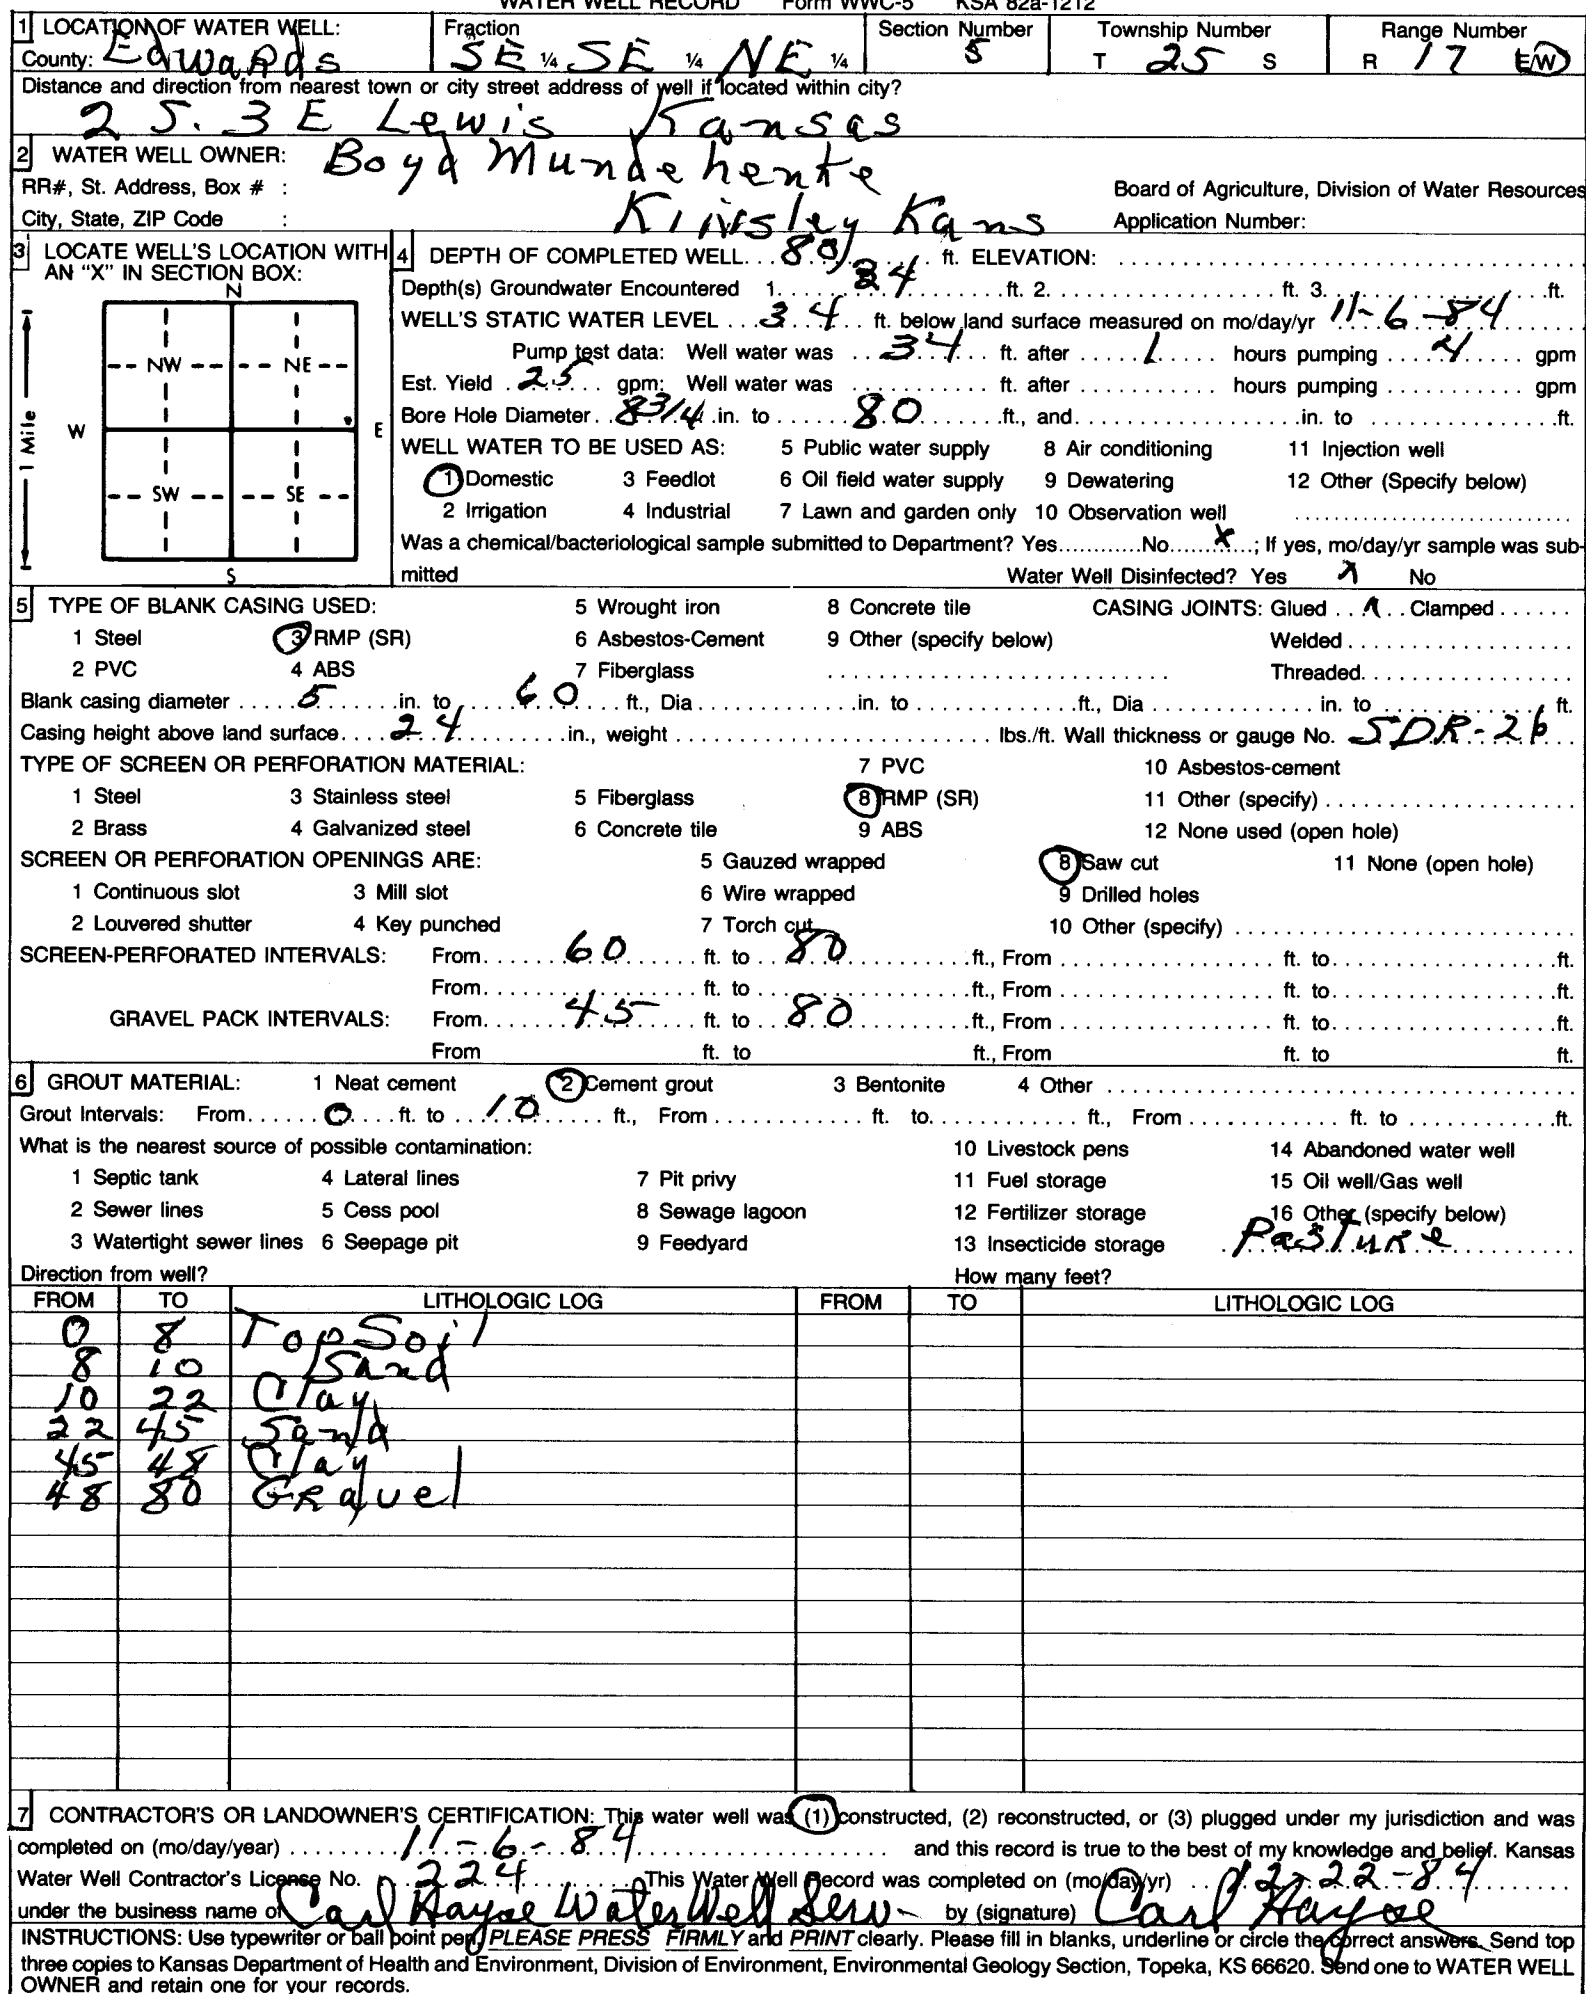 WATER WELL RECORD Form WWC-5 KSA 82a-1212
1 LOCATION OF WATER WELL: Fraction Section Number Township Number Range Number
County: Edwards SE ¼ SE ¼ NE ¼ 5 T 25 S R 17 E/W
Distance and direction from nearest town or city street address of well if located within city?
2 S. 3 E Lewis Kansas
2 WATER WELL OWNER: Boyd Mundehenke
RR#, St. Address, Box # : Board of Agriculture, Division of Water Resources
City, State, ZIP Code : Kinsley Kans Application Number:
3 LOCATE WELL'S LOCATION WITH AN "X" IN SECTION BOX:
N
NW NE
W E
SW SE
S
1 Mile
4 DEPTH OF COMPLETED WELL...80...ft. ELEVATION:
Depth(s) Groundwater Encountered 1...34...ft. 2...ft. 3...ft.
WELL'S STATIC WATER LEVEL...34...ft. below land surface measured on mo/day/yr 11-6-84
Pump test data: Well water was...34...ft. after...1...hours pumping...4...gpm
Est. Yield 25 gpm: Well water was...ft. after...hours pumping...gpm
Bore Hole Diameter..8 3/4.in. to...80...ft., and...in. to...ft.
WELL WATER TO BE USED AS: 5 Public water supply 8 Air conditioning 11 Injection well
1 Domestic 3 Feedlot 6 Oil field water supply 9 Dewatering 12 Other (Specify below)
2 Irrigation 4 Industrial 7 Lawn and garden only 10 Observation well
Was a chemical/bacteriological sample submitted to Department? Yes...No...X...; If yes, mo/day/yr sample was sub-
mitted Water Well Disinfected? Yes X No
5 TYPE OF BLANK CASING USED: 5 Wrought iron 8 Concrete tile CASING JOINTS: Glued...X..Clamped
1 Steel 3 RMP (SR) 6 Asbestos-Cement 9 Other (specify below) Welded
2 PVC 4 ABS 7 Fiberglass Threaded
Blank casing diameter...5...in. to...60...ft., Dia...in. to...ft., Dia...in. to...ft.
Casing height above land surface...24...in., weight...lbs./ft. Wall thickness or gauge No. SDR-26
TYPE OF SCREEN OR PERFORATION MATERIAL: 7 PVC 10 Asbestos-cement
1 Steel 3 Stainless steel 5 Fiberglass 8 RMP (SR) 11 Other (specify)
2 Brass 4 Galvanized steel 6 Concrete tile 9 ABS 12 None used (open hole)
SCREEN OR PERFORATION OPENINGS ARE: 5 Gauzed wrapped 8 Saw cut 11 None (open hole)
1 Continuous slot 3 Mill slot 6 Wire wrapped 9 Drilled holes
2 Louvered shutter 4 Key punched 7 Torch cut 10 Other (specify)
SCREEN-PERFORATED INTERVALS: From...60...ft. to...80...ft., From...ft. to...ft.
From...ft. to...ft., From...ft. to...ft.
GRAVEL PACK INTERVALS: From...45...ft. to...80...ft., From...ft. to...ft.
From ft. to ft., From ft. to ft.
6 GROUT MATERIAL: 1 Neat cement 2 Cement grout 3 Bentonite 4 Other
Grout Intervals: From...0...ft. to...10...ft., From...ft. to...ft., From...ft. to...ft.
What is the nearest source of possible contamination: 10 Livestock pens 14 Abandoned water well
1 Septic tank 4 Lateral lines 7 Pit privy 11 Fuel storage 15 Oil well/Gas well
2 Sewer lines 5 Cess pool 8 Sewage lagoon 12 Fertilizer storage 16 Other (specify below)
3 Watertight sewer lines 6 Seepage pit 9 Feedyard 13 Insecticide storage Pasture
Direction from well? How many feet?
FROM TO LITHOLOGIC LOG FROM TO LITHOLOGIC LOG
0 8 Top Soil
8 10 Sand
10 22 Clay
22 45 Sand
45 48 Clay
48 80 Gravel
7 CONTRACTOR'S OR LANDOWNER'S CERTIFICATION: This water well was (1) constructed, (2) reconstructed, or (3) plugged under my jurisdiction and was
completed on (mo/day/year)...11-6-84...and this record is true to the best of my knowledge and belief. Kansas
Water Well Contractor's License No. 224 This Water Well Record was completed on (mo/day/yr) 12-22-84
under the business name of Carl Hayse Water Well Serv- by (signature) Carl Hayse
INSTRUCTIONS: Use typewriter or ball point pen, PLEASE PRESS FIRMLY and PRINT clearly. Please fill in blanks, underline or circle the correct answers. Send top
three copies to Kansas Department of Health and Environment, Division of Environment, Environmental Geology Section, Topeka, KS 66620. Send one to WATER WELL
OWNER and retain one for your records.